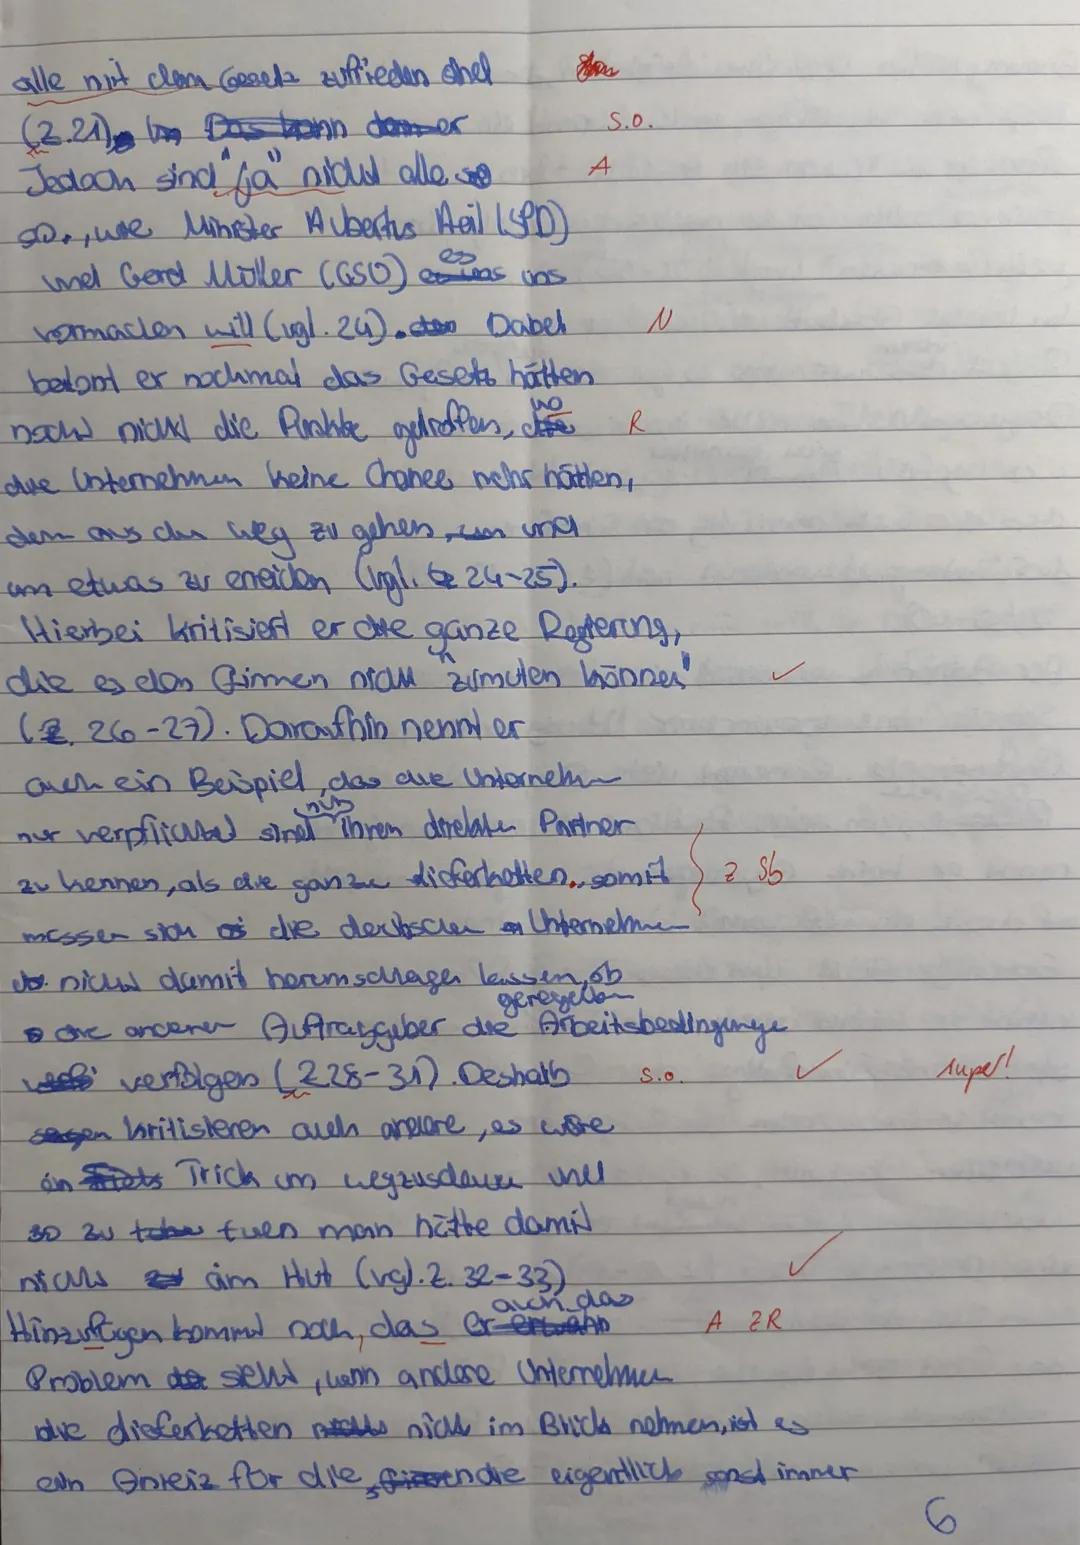 alle mit dem Gesetz zufrieden sind
(Z.21). S.O.
Jedoch sind "ja" nicht alle A
so, wie Minister Hubertus Heil (SPD)
und Gerd Müller (CSU) es uns
vormachen will (vgl. 24). Dabei N
betont er nochmal das Gesetz hätten
noch nicht die Punkte getroffen, wo R
die Unternehmen keine Chance mehr hätten,
dem aus den Weg zu gehen und
um etwas zu (vgl. 24-25).
Hierbei kritisiert er die ganze Regierung,
die es den Firmen nicht "zumuten können" ✓
(Z. 26-27). Daraufhin nennt er
auch ein Beispiel, das die Unternehm
nur verpflichtet sind nur ihren direkten Partner
zu kennen, als die ganze Lieferketten, somit } Z Sb
müssen sich die deutschen Unternehmen
nicht damit herumschlagen lassen, ob
die anderen Auftraggeber die geregelten Arbeitsbedingunge
verfolgen (Z28-31). Deshalb S.o. ✓ super!
kritisieren auch andere, es wäre
ein Trick um wegzuschauen und
so zu tuen man hätte damit
nichts am Hut (vgl. Z. 32-33) ✓
Hinzufügen kommt noch, das er auch das A ZR
Problem sieht, wenn andere Unternehmen
die Lieferketten nicht im Blick nehmen, ist es
ein Anreiz für die, die eigentlich sonst immer
6